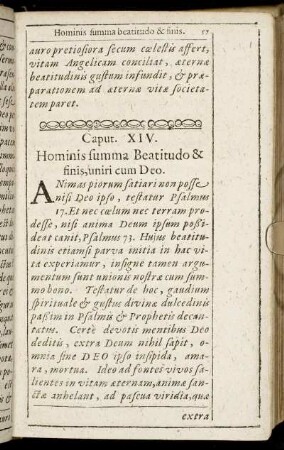 Hominis summa beatitudo & finis. 57
auro pretiosiora secum cœlestis affert,
vitam Angelicam conciliat, æternæ
beatitudinis gustum infundit, & præ-
parationem ad æternæ vitæ societa-
tem paret.
Caput. XIV.
Hominis summa Beatitudo &
finis, uniri cum Deo.
ANimas piorum satiari non posse
nisi Deo ipso, testatur Psalmus
17. Et nec cœlum nec terram pro-
desse, nisi anima Deum ipsum possi-
deat canit, Psalmus 73. Hujus beatitu-
dinis etiamsi parva initia in hac vi-
ta experiamur, insigne tamen argu-
mentum sunt unionis nostræ cum sum-
mo bono. Testatur de hoc, gaudium
spirituale & gustus divinæ dulcedinis
passim in Psalmis & Prophetis decan-
tatus. Certè devotis mentibus Deo
deditis, extra Deum nihil sapit, o-
mnia sine DEO ipso insipida, ama-
ra, mortua. Ideo ad fontes vivos sa-
lientes in vitam æternam, animæ san-
ctæ anhelant, ad pascua viridia, quæ
extra